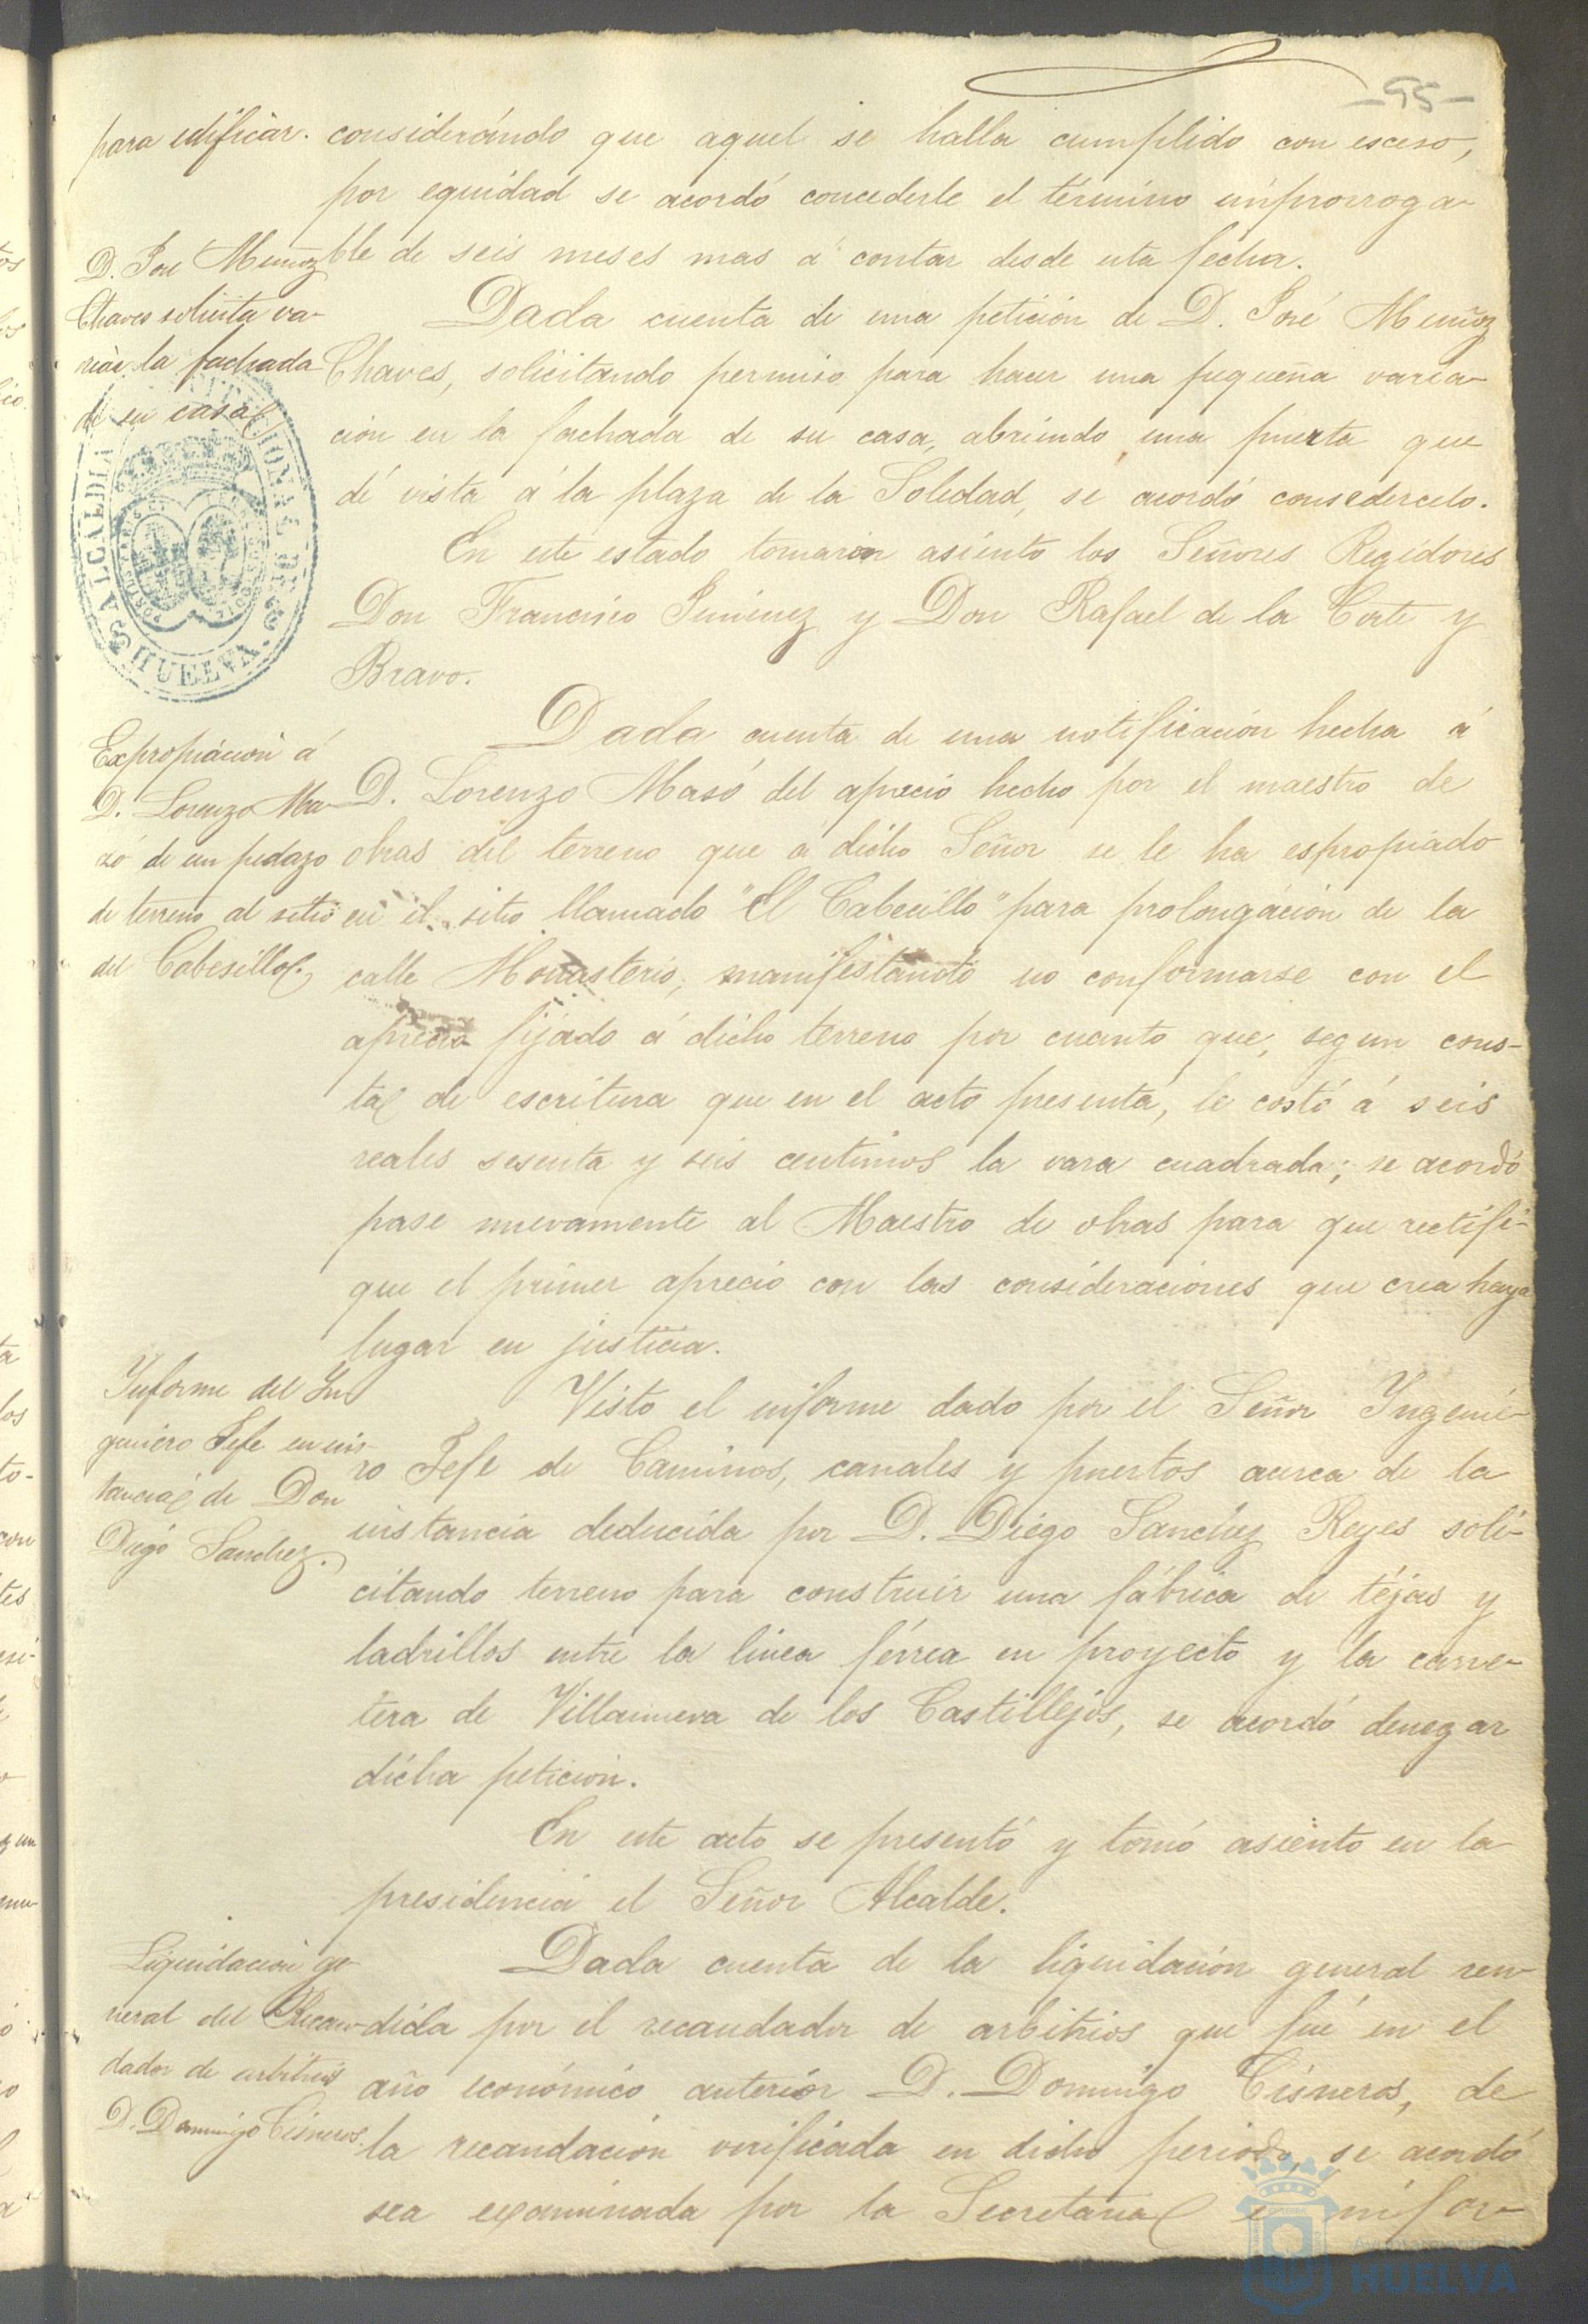 -95-
para edificar.
considerándo que aquel se halla cumplido con esceso,
por equidad se acordó concederle el término improrroga-
ble de seis meses mas á contar desde esta fecha.
D. José Muñoz
Chaves solicita va-
riar la fachada
de su casa
Dada cuenta de una petición de D. José Muñoz
Chaves, solicitando permiso para hacer una pequeña varia-
ción en la fachada de su casa, abriendo una puerta que
dé vista á la plaza de la Soledad, se acordó consedercelo.
ALCALDIA
HUELVA
En este estado tomaron asiento los Señores Regidores
Don Francisco Jimenez y Don Rafael de la Corte y
Bravo.
Expropiación á
D. Lorenzo Ma-
zó de un pedazo
de terreno al sitio
del Cabesillo.
Dada cuenta de una notificación hecha á
D. Lorenzo Masó del aprecio hecho por el maestro de
obras del terreno que a dicho Señor se le ha espropiado
en el sitio llamado "El Cabecillo" para prolongación de la
calle Monasterio, manifestando no conformarse con el
aprecio fijado á dicho terreno por cuanto que, segun cons-
ta de escritura que en el acto presenta, le costó á seis
reales sesenta y seis centimos la vara cuadrada; se acordó
pase nuevamente al Maestro de obras para que rectifi-
que el primer aprecio con las consideraciones que crea haya
lugar en justicia.
Informe del In
geniero Jefe en ins-
tancia de Don
Diego Sanchez.
Visto el informe dado por el Señor Ingenie-
ro Jefe de Caminos, canales y puertos acerca de la
instancia deducida por D. Diego Sanchez Reyes soli-
citando terreno para construir una fábrica de téjas y
ladrillos entre la linea férrea en proyecto y la carre-
tera de Villanueva de los Castillejos, se acordó denegar
dicha petición.
En este acto se presentó y tomó asiento en la
presidencia el Señor Alcalde.
Liquidación ge-
neral del Recau-
dador de arbitrios
D. Domingo Cisneros.
Dada cuenta de la liquidación general ren-
dida por el recaudador de arbitrios que fué en el
año económico anterior D. Domingo Cisneros, de
la recaudación verificada en dicho periodo, se acordó
sea examinada por la Secretaria é infor-
HUELVA